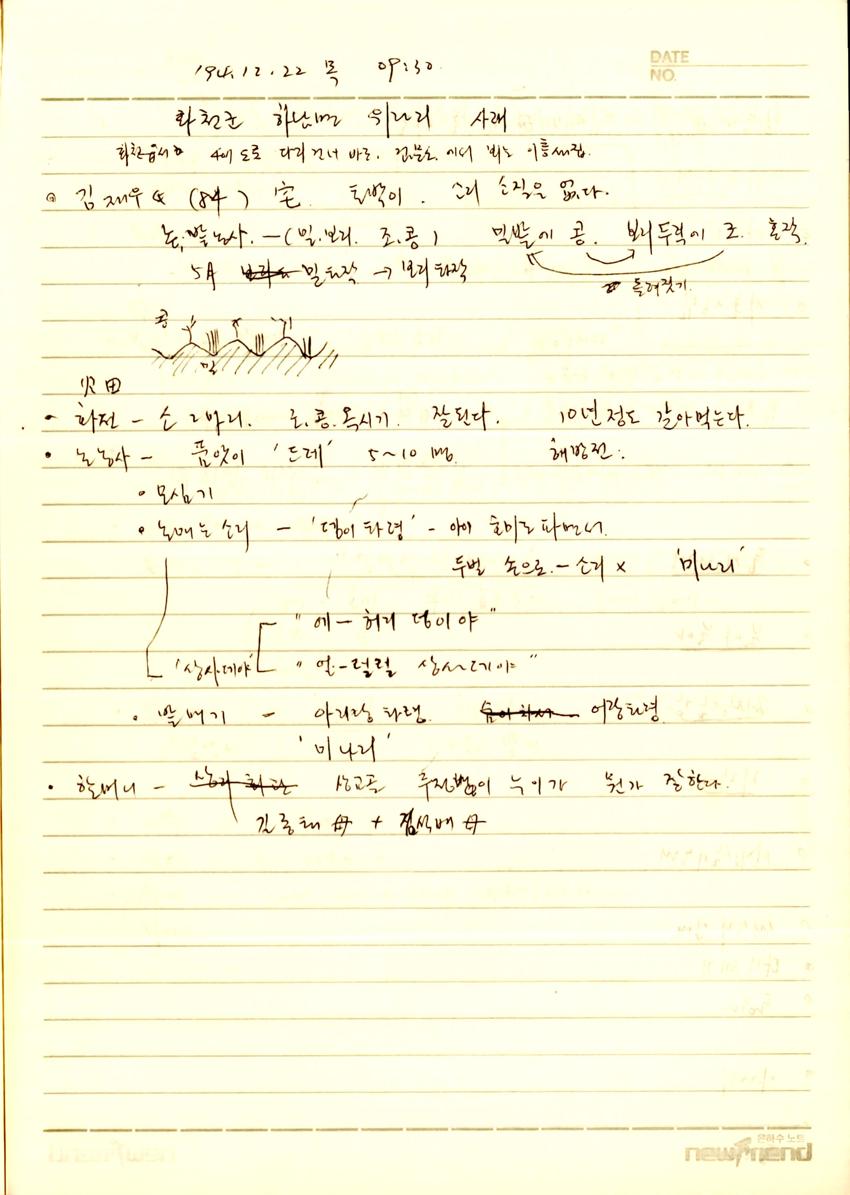 '94.12.22 목 09:30
DATE
NO.
화천군 하남면 위라리 사례
화천읍서 4이 도로 다리건너 바로. 검문소에서 뵈는 이층새집.
김재우 (84) 宅. 토박이. 소리 소질은 없다.
논, 밭농사. - (밀.보리. 조.콩) 밀밭에 콩. 보리두럭에 조. 혼작.
5月 밀타작 → 보리타작
돌려짓기
콩
밀
火田
· 화전 - 소 2마리. 조.콩.옥시기. 잘된다. 10년정도 갈아먹는다.
· 논농사 - 품앗이 '드레' 5~10명. 해방전.
· 모심기
· 논매는소리 - '뎅이타령' - 아이 호미로파면서.
두벌 손으로. - 소리 x '미나리'
"에- 허리 뎅이야"
'상사데야' "얼-럴럴 상사데야"
· 밭매기 - 아리랑타령. 어랑타령
'미나리'
· 할머니 - 상고를 누이가 뭔가 잘한다.
김종태 母 + 김석배 母
은하수 노트
newfriend